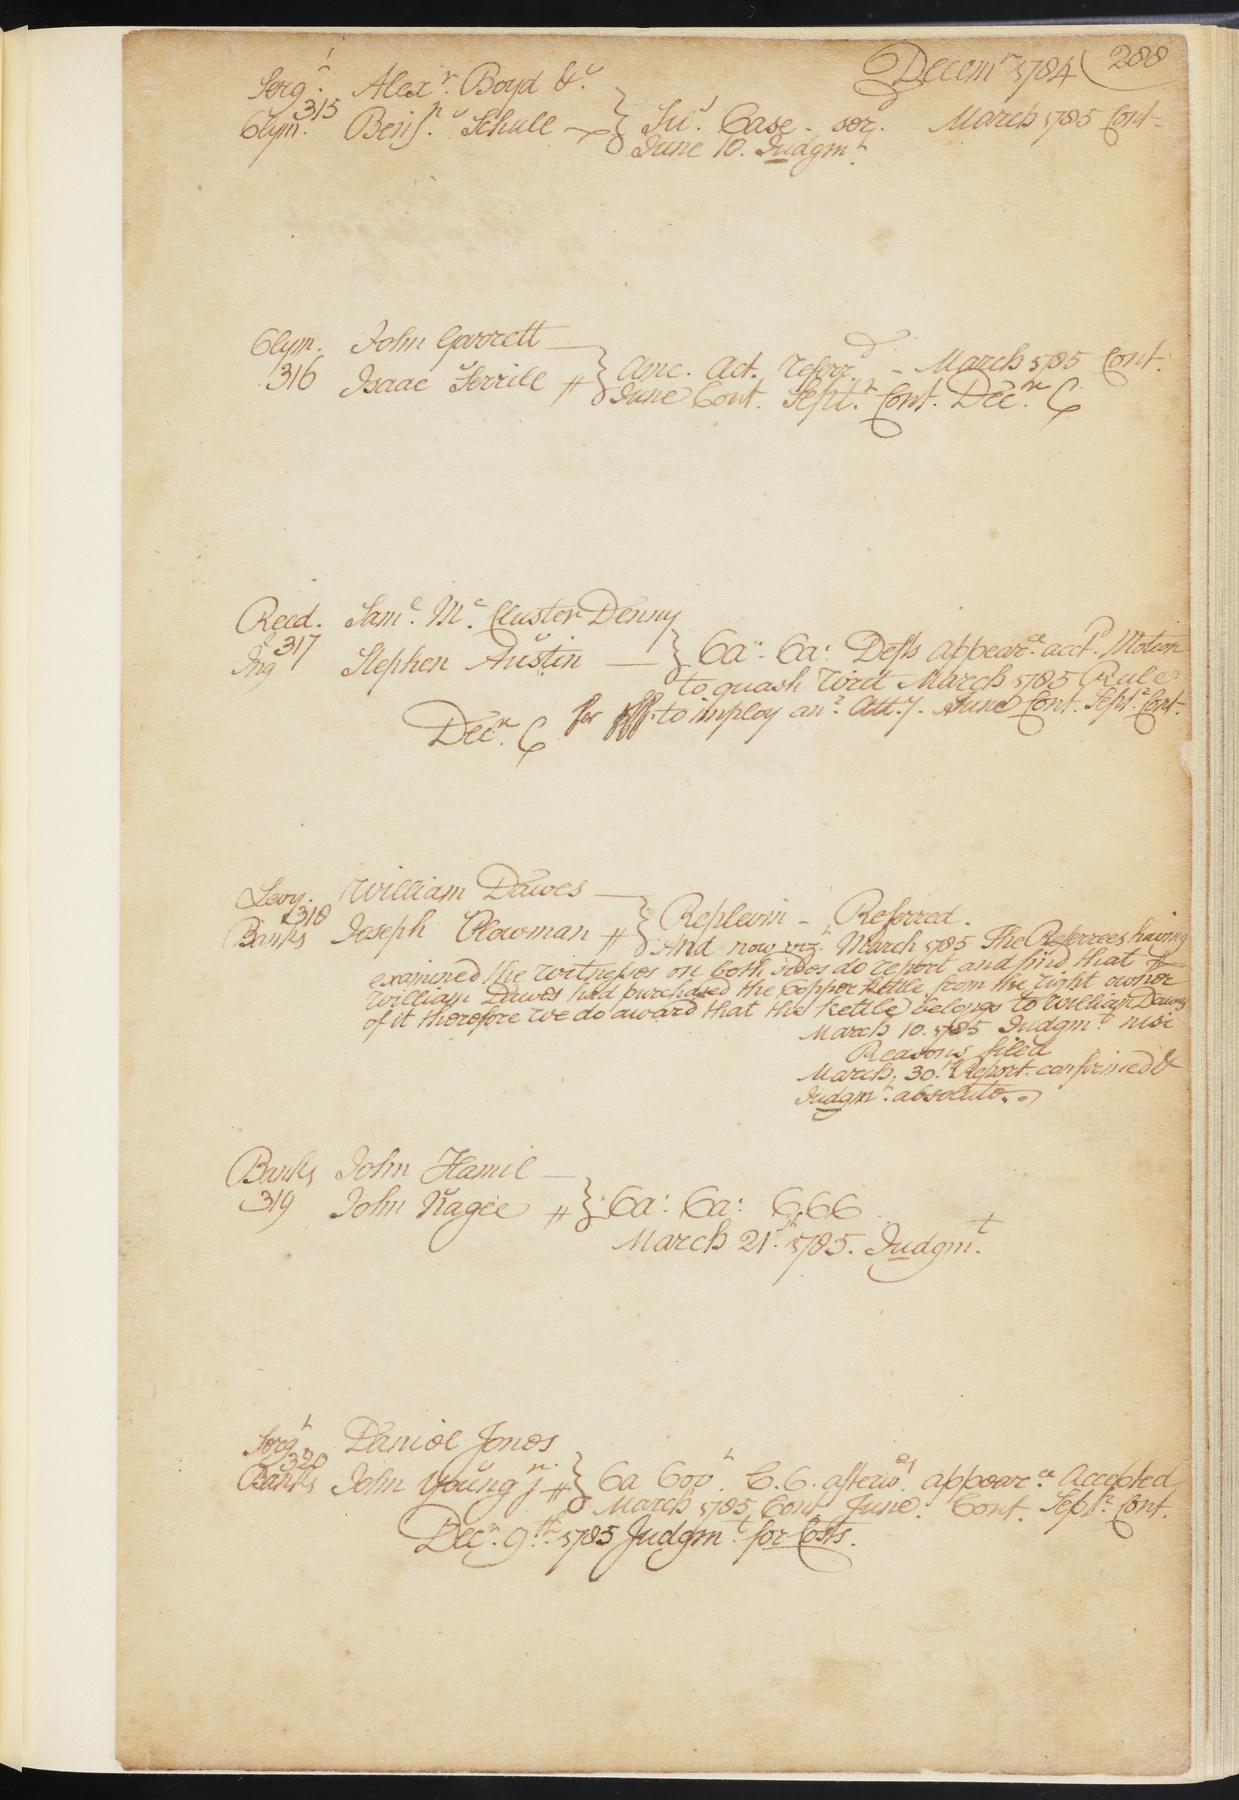 Decemr. 1784 (288
Sergt. Alexr. Boyd &c.
315
Clym. Benjn. Schull } Su. Case - March 1785 Cont.
June 10. Judgmt.
Clym. John Garrett
316 Isaac Serrill # } Amc. Act. Referrd - March 1785 Cont.
June Cont. Septr. Cont. Decr. C
Reed. Saml. Mc. Cluster Denny
317
Ing Stephen Austin } Ca: Ca: Defts appearce. acct. Motion
to quash Writ March 1785 Rule
for to imploy anr. Atty. June Cont. Septr. Cont.
Decr. C
Levy. William Dawes
318
Banks Joseph Plowman # } Replevin - Referred.
And now vizt. March 1785 The Referrees having
examined the witnesses on both sides do report and find that
William Dawes had purchased the Copper kettle from the right owner
of it therefore we do award that the kettle belongs to William Dawes
March 10. 1785 Judgmt. nisi
Reasons filed
March. 30th. Report confirmed &
Judgmt. absolute.
Banks John Hamil
319 John Nagle # } Ca: Ca: C.C.C.
March 21st. 1785. Judgmt.
Sergt Daniel Jones
320
Banks John Young jr. # } Ca C.C. afterwds. appearce. Accepted
March 1785 Cont June. Cont. Septr. Cont.
Decr. 9th. 1785 Judgmt. for Costs.